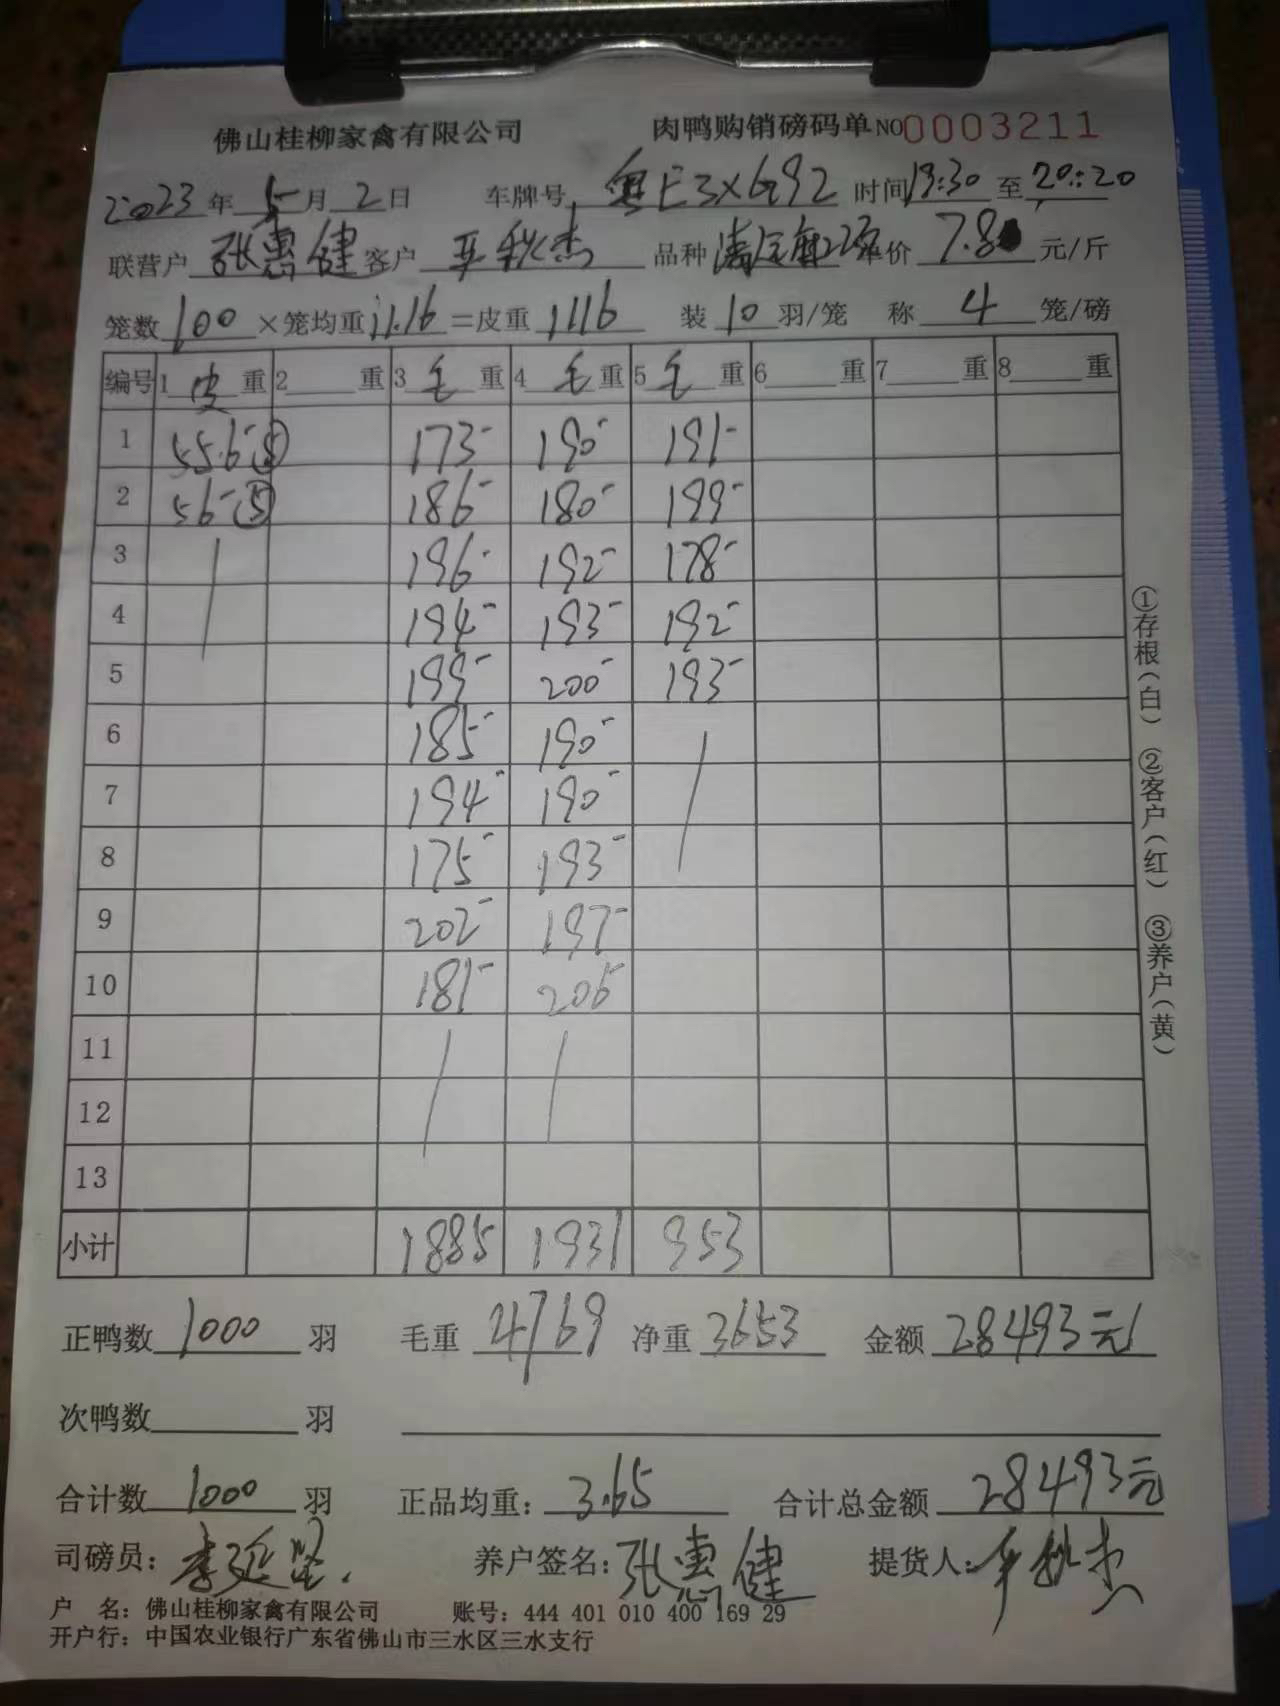 佛山桂柳家禽有限公司 肉鸭购销磅码单 NO0003211
2023年5月2日 车牌号 粤E3X692 时间19:30至20:20
联营户 张惠健 客户 秋杰 品种 单价 7.8 元/斤
笼数100×笼均重11.16=皮重1116 装10羽/笼 称4笼/磅
编号 1皮重 2重 3毛重 4毛重 5毛重 6重 7重 8重
1 55.6-⑤ 173- 190- 191-
2 56-⑤ 186- 180- 199-
3 196- 192- 178-
4 194- 193- 192-
5 199- 200- 193-
6 185- 190-
7 194- 190-
8 175- 193-
9 202- 197-
10 181- 206-
11
12
13
小计 1885 1931 953
正鸭数 1000 羽 毛重 4769 净重 3653 金额 28493元
次鸭数 羽
合计数 1000 羽 正品均重: 3.65 合计总金额 28493元
司磅员: 李延坚 养户签名: 张惠健 提货人: 秋杰
户 名: 佛山桂柳家禽有限公司 账号: 444 401 010 400 169 29
开户行: 中国农业银行广东省佛山市三水区三水支行
①存根(白) ②客户(红) ③养户(黄)